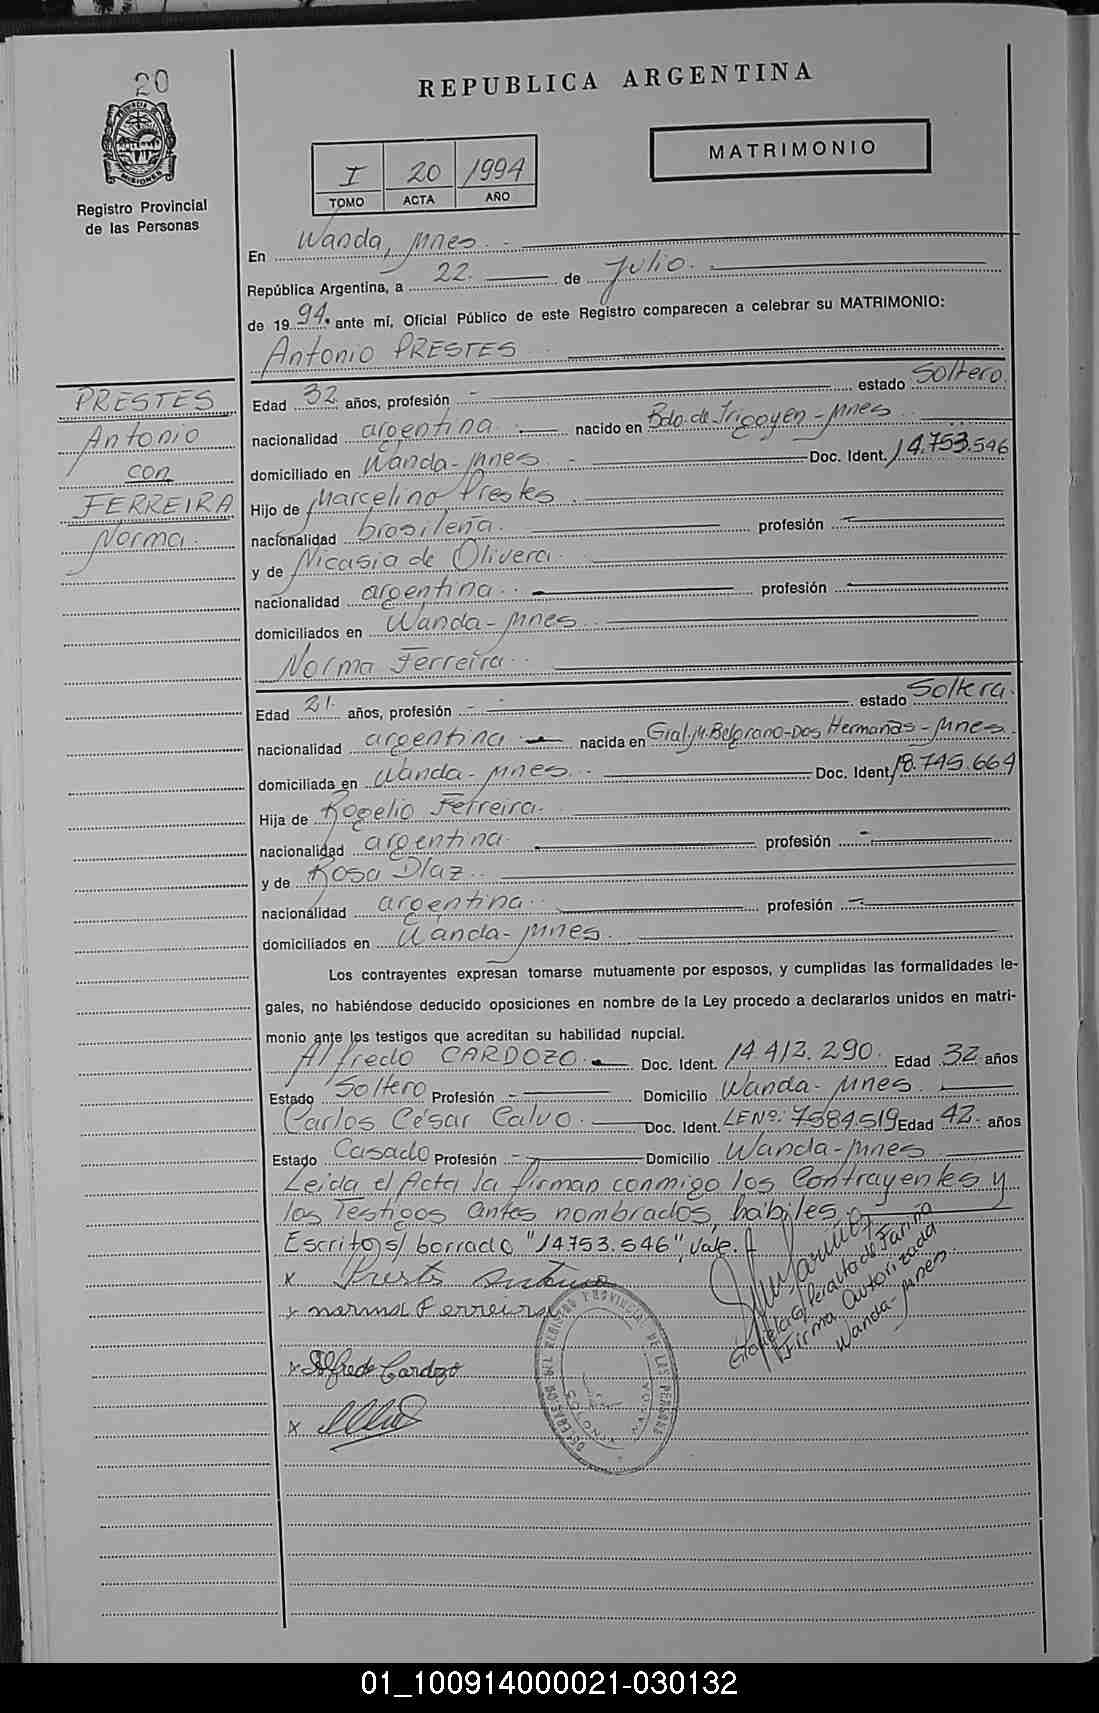 20
PROVINCIA DE
MISIONES
Registro Provincial
de las Personas
REPUBLICA ARGENTINA
I 20 1994
TOMO ACTA AÑO
MATRIMONIO
En Wanda, Mnes.-
República Argentina, a 22. de Julio.
de 1994. ante mí, Oficial Público de este Registro comparecen a celebrar su MATRIMONIO:
Antonio PRESTES
PRESTES
Antonio
con
FERREIRA
Norma.
Edad 32 años, profesión - estado Soltero.
nacionalidad argentina. nacido en Bdo. de Irigoyen-Mnes.
domiciliado en Wanda-Mnes.- Doc. Ident. 14.753.546
Hijo de Marcelino Prestes.
nacionalidad brasileña. profesión -
y de Nicasia de Olivera.
nacionalidad argentina. profesión -
domiciliados en Wanda-Mnes.
Norma Ferreira.
Edad 21. años, profesión - estado Soltera.
nacionalidad argentina nacida en Gral. M. Belgrano-Dos Hermanas-Mnes.
domiciliada en Wanda-Mnes.- Doc. Ident. 18.745.664
Hija de Rogelio Ferreira.
nacionalidad argentina. profesión -
y de Rosa Díaz.
nacionalidad argentina. profesión -
domiciliados en Wanda-Mnes.
Los contrayentes expresan tomarse mutuamente por esposos, y cumplidas las formalidades le-
gales, no habiéndose deducido oposiciones en nombre de la Ley procedo a declararlos unidos en matri-
monio ante los testigos que acreditan su habilidad nupcial.
Alfredo CARDOZO. Doc. Ident. 14.412.290. Edad 32 años
Estado Soltero Profesión - Domicilio Wanda-Mnes.
Carlos César Calvo. Doc. Ident. LENº: 7584.519 Edad 42. años
Estado Casado Profesión - Domicilio Wanda-Mnes.
Leida el Acta la firman conmigo los Contrayentes y
los Testigos antes nombrados, hábiles.
Escrito s/ borrado "14.753.546", vale.
x Prestes Antonio
x norma Ferreira
x Alfredo Cardozo
x
Graciela G. Peralta de Fariña
Firma Autorizada
Wanda-Mnes.
REGISTRO PROVINCIAL DE LAS PERSONAS
WANDA
01_100914000021-030132